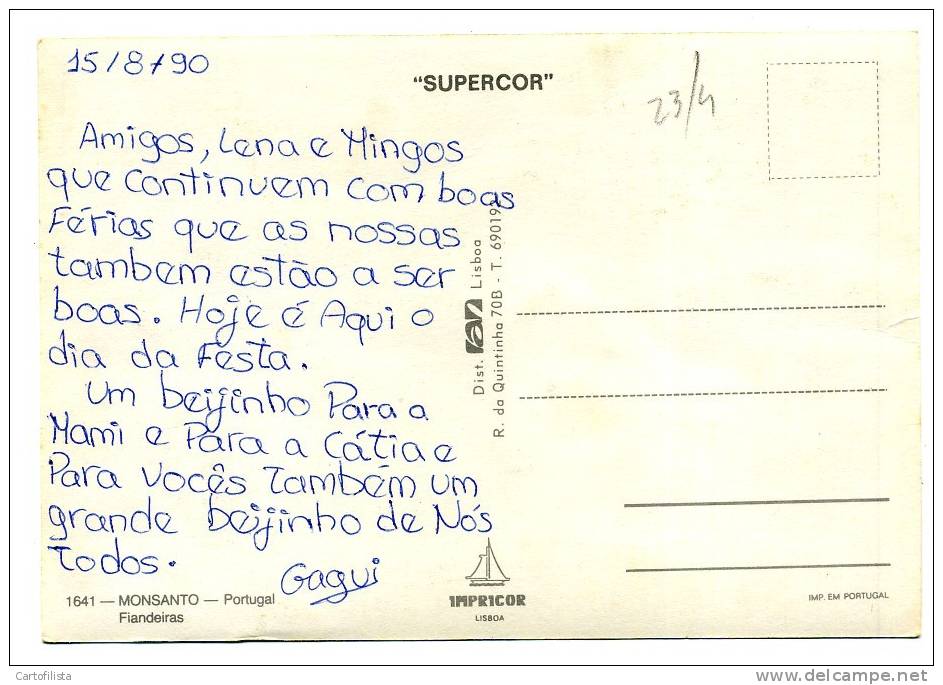 15/8/90
"SUPERCOR"
23/4
Amigos, Lena e Mingos
que continuem com boas
Férias que as nossas
tambem estão a ser
boas. Hoje é Aqui o
dia da Festa.
Um beijinho Para a
Mami e Para a Cátia e
Para vocês também um
grande beijinho de Nós
Todos.
Gagui
Dist. Lisboa
R. da Quintinha 70B - T. 69019
1641 — MONSANTO — Portugal
Fiandeiras
IMPRICOR
LISBOA
IMP. EM PORTUGAL
Cartofilista
delcampe.net